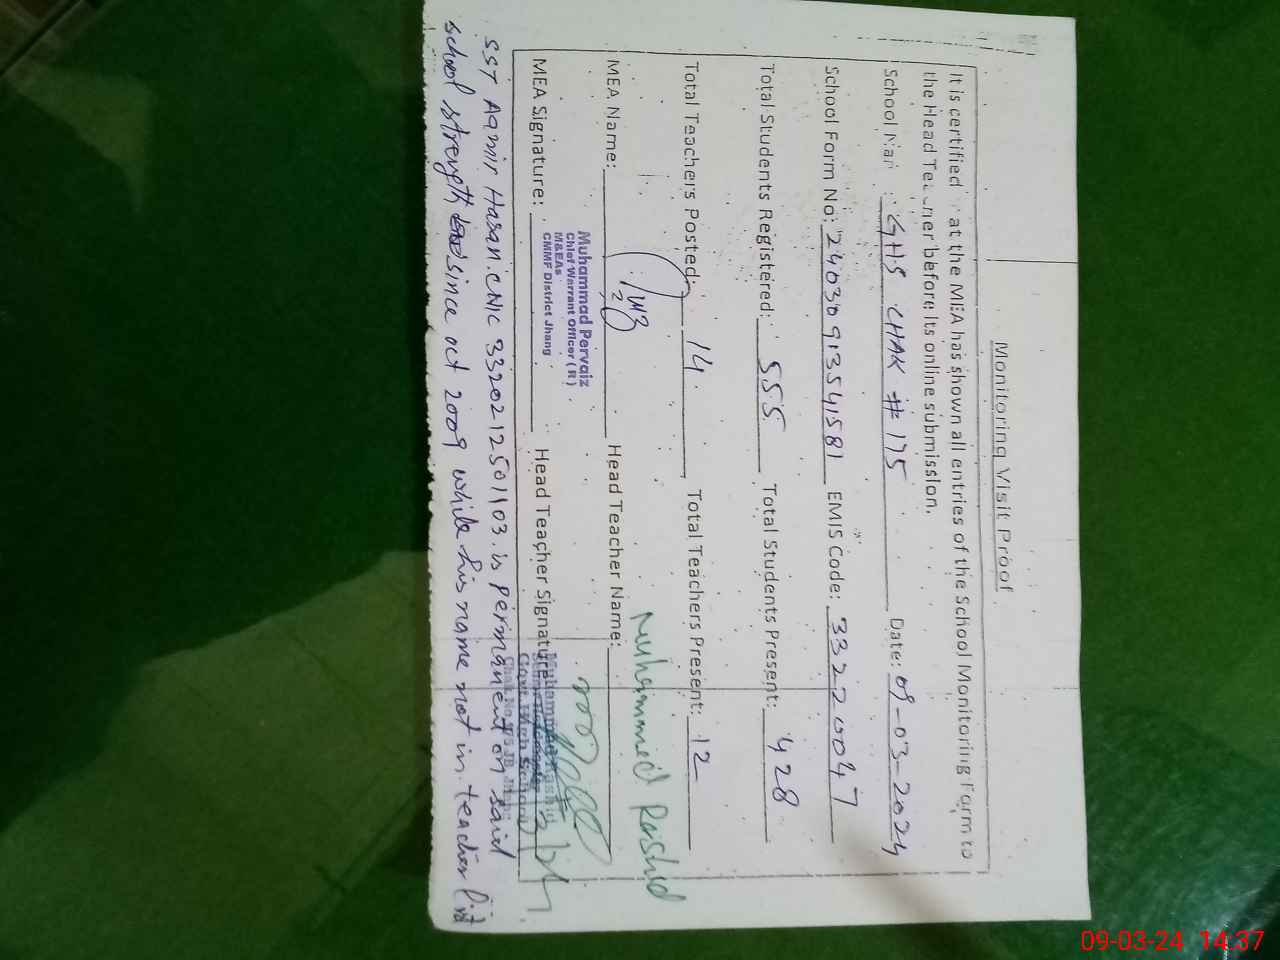 Monitoring Visit Proof
It is certified that the MEA has shown all entries of the School Monitoring Form to
the Head Teacher before its online submission.
School Nam : GHS CHAK # 175 Date: 09-03-2024
School Form No: 24030913541581 EMIS Code: 33220047
Total Students Registered: 555 Total Students Present: 428
Total Teachers Posted: 14 Total Teachers Present: 12
MEA Name: Head Teacher Name: Muhammad Rashid
Muhammad Pervaiz
Chief Warrant Officer (R)
M&EAs
CMMF District Jhang
MEA Signature: Head Teacher Signature
Muhammad Rashid
Govt. High School
Chak No. 175 JB
SST Aamir Hasan. CNIC 3320212501103. is permanent on said
school strength since oct 2009 while his name not in teacher list
09-03-24 14:37